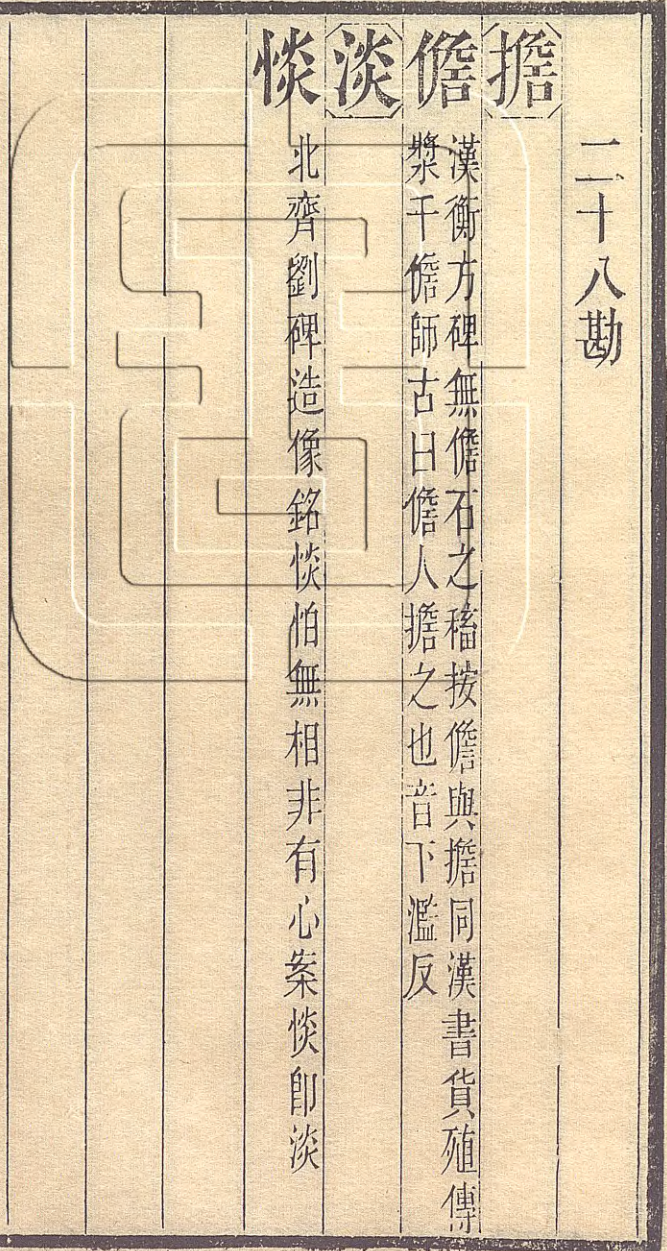 二十八勘
擔
儋
漢衡方碑無儋石之稸按儋與擔同漢書貨殖傳
漿千儋師古曰儋人擔之也音下濫反
淡
惔
北齊劉碑造像銘惔怕無相非有心案惔卽淡